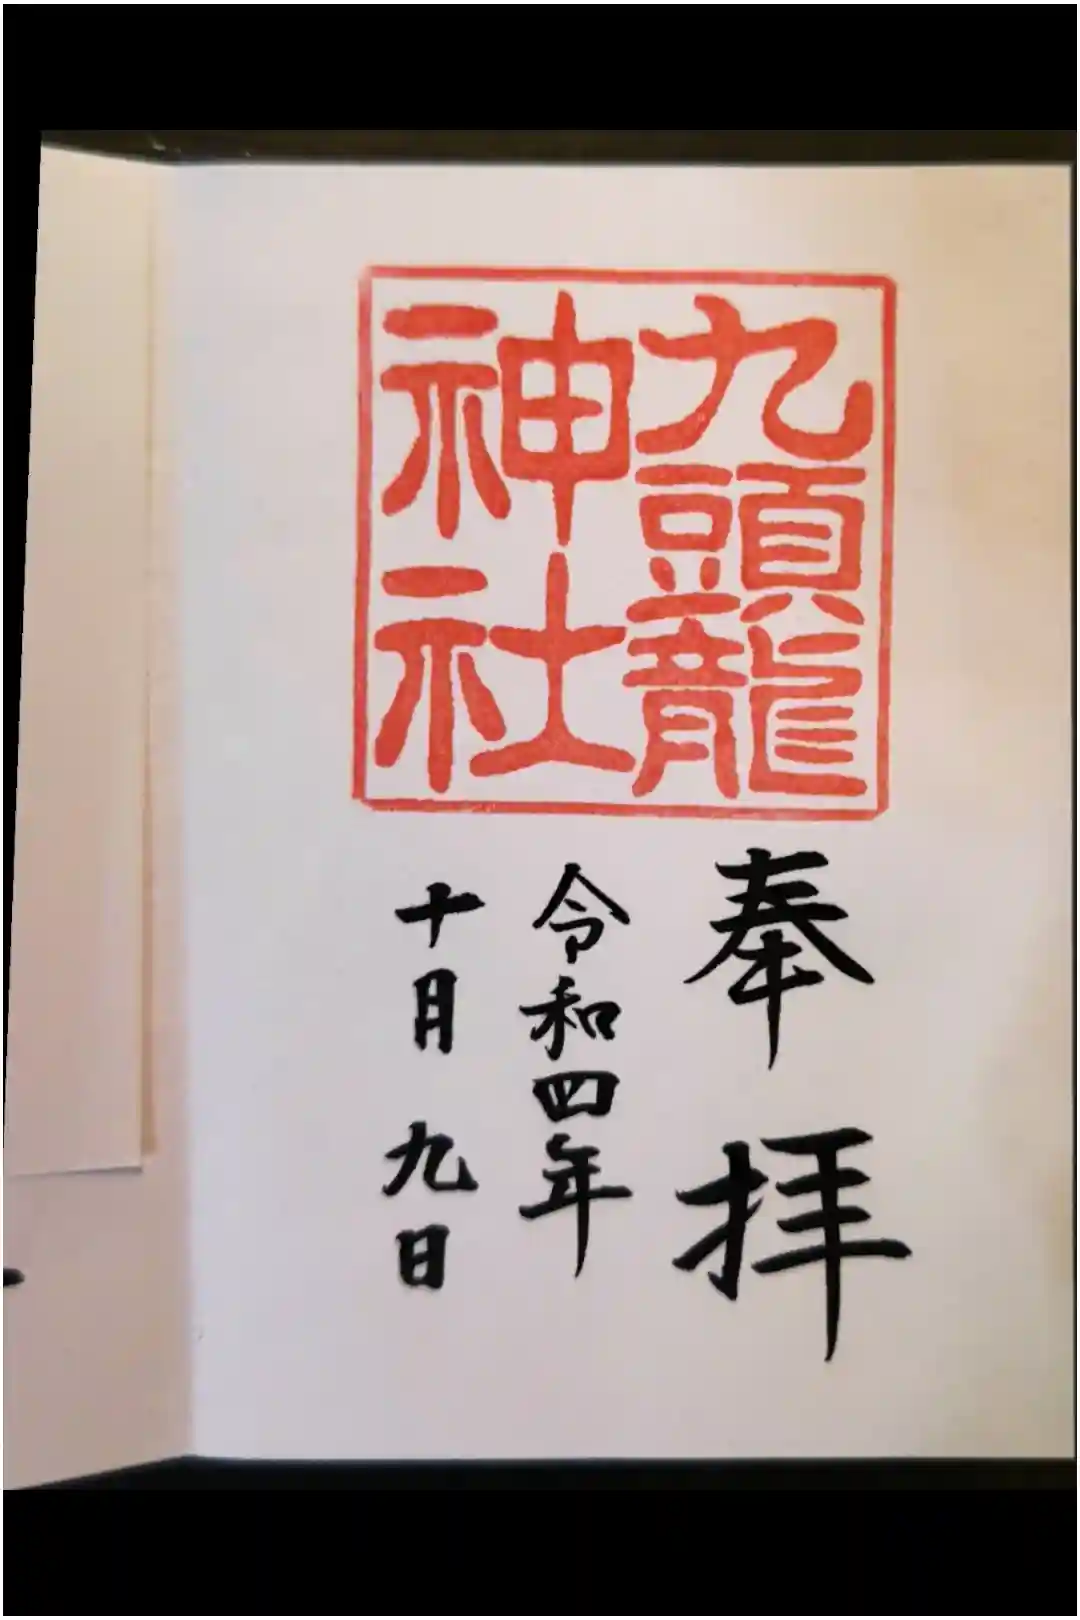 九頭龍
神社
奉拝
令和四年
十月九日